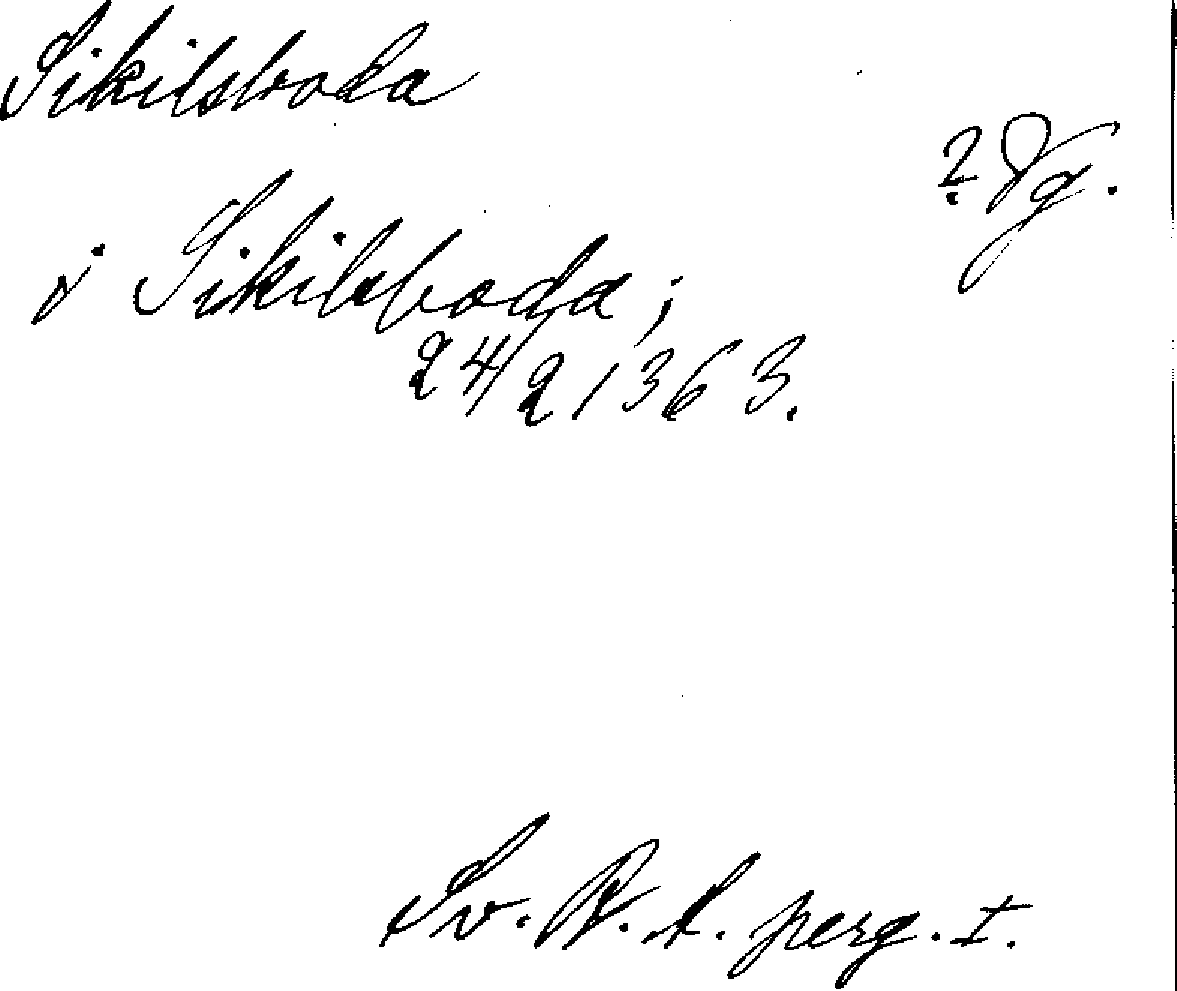 Sikilsboda
? Vg.
j Sikilsboda;
24/2 1363.
Sv. R. A. perg. I.